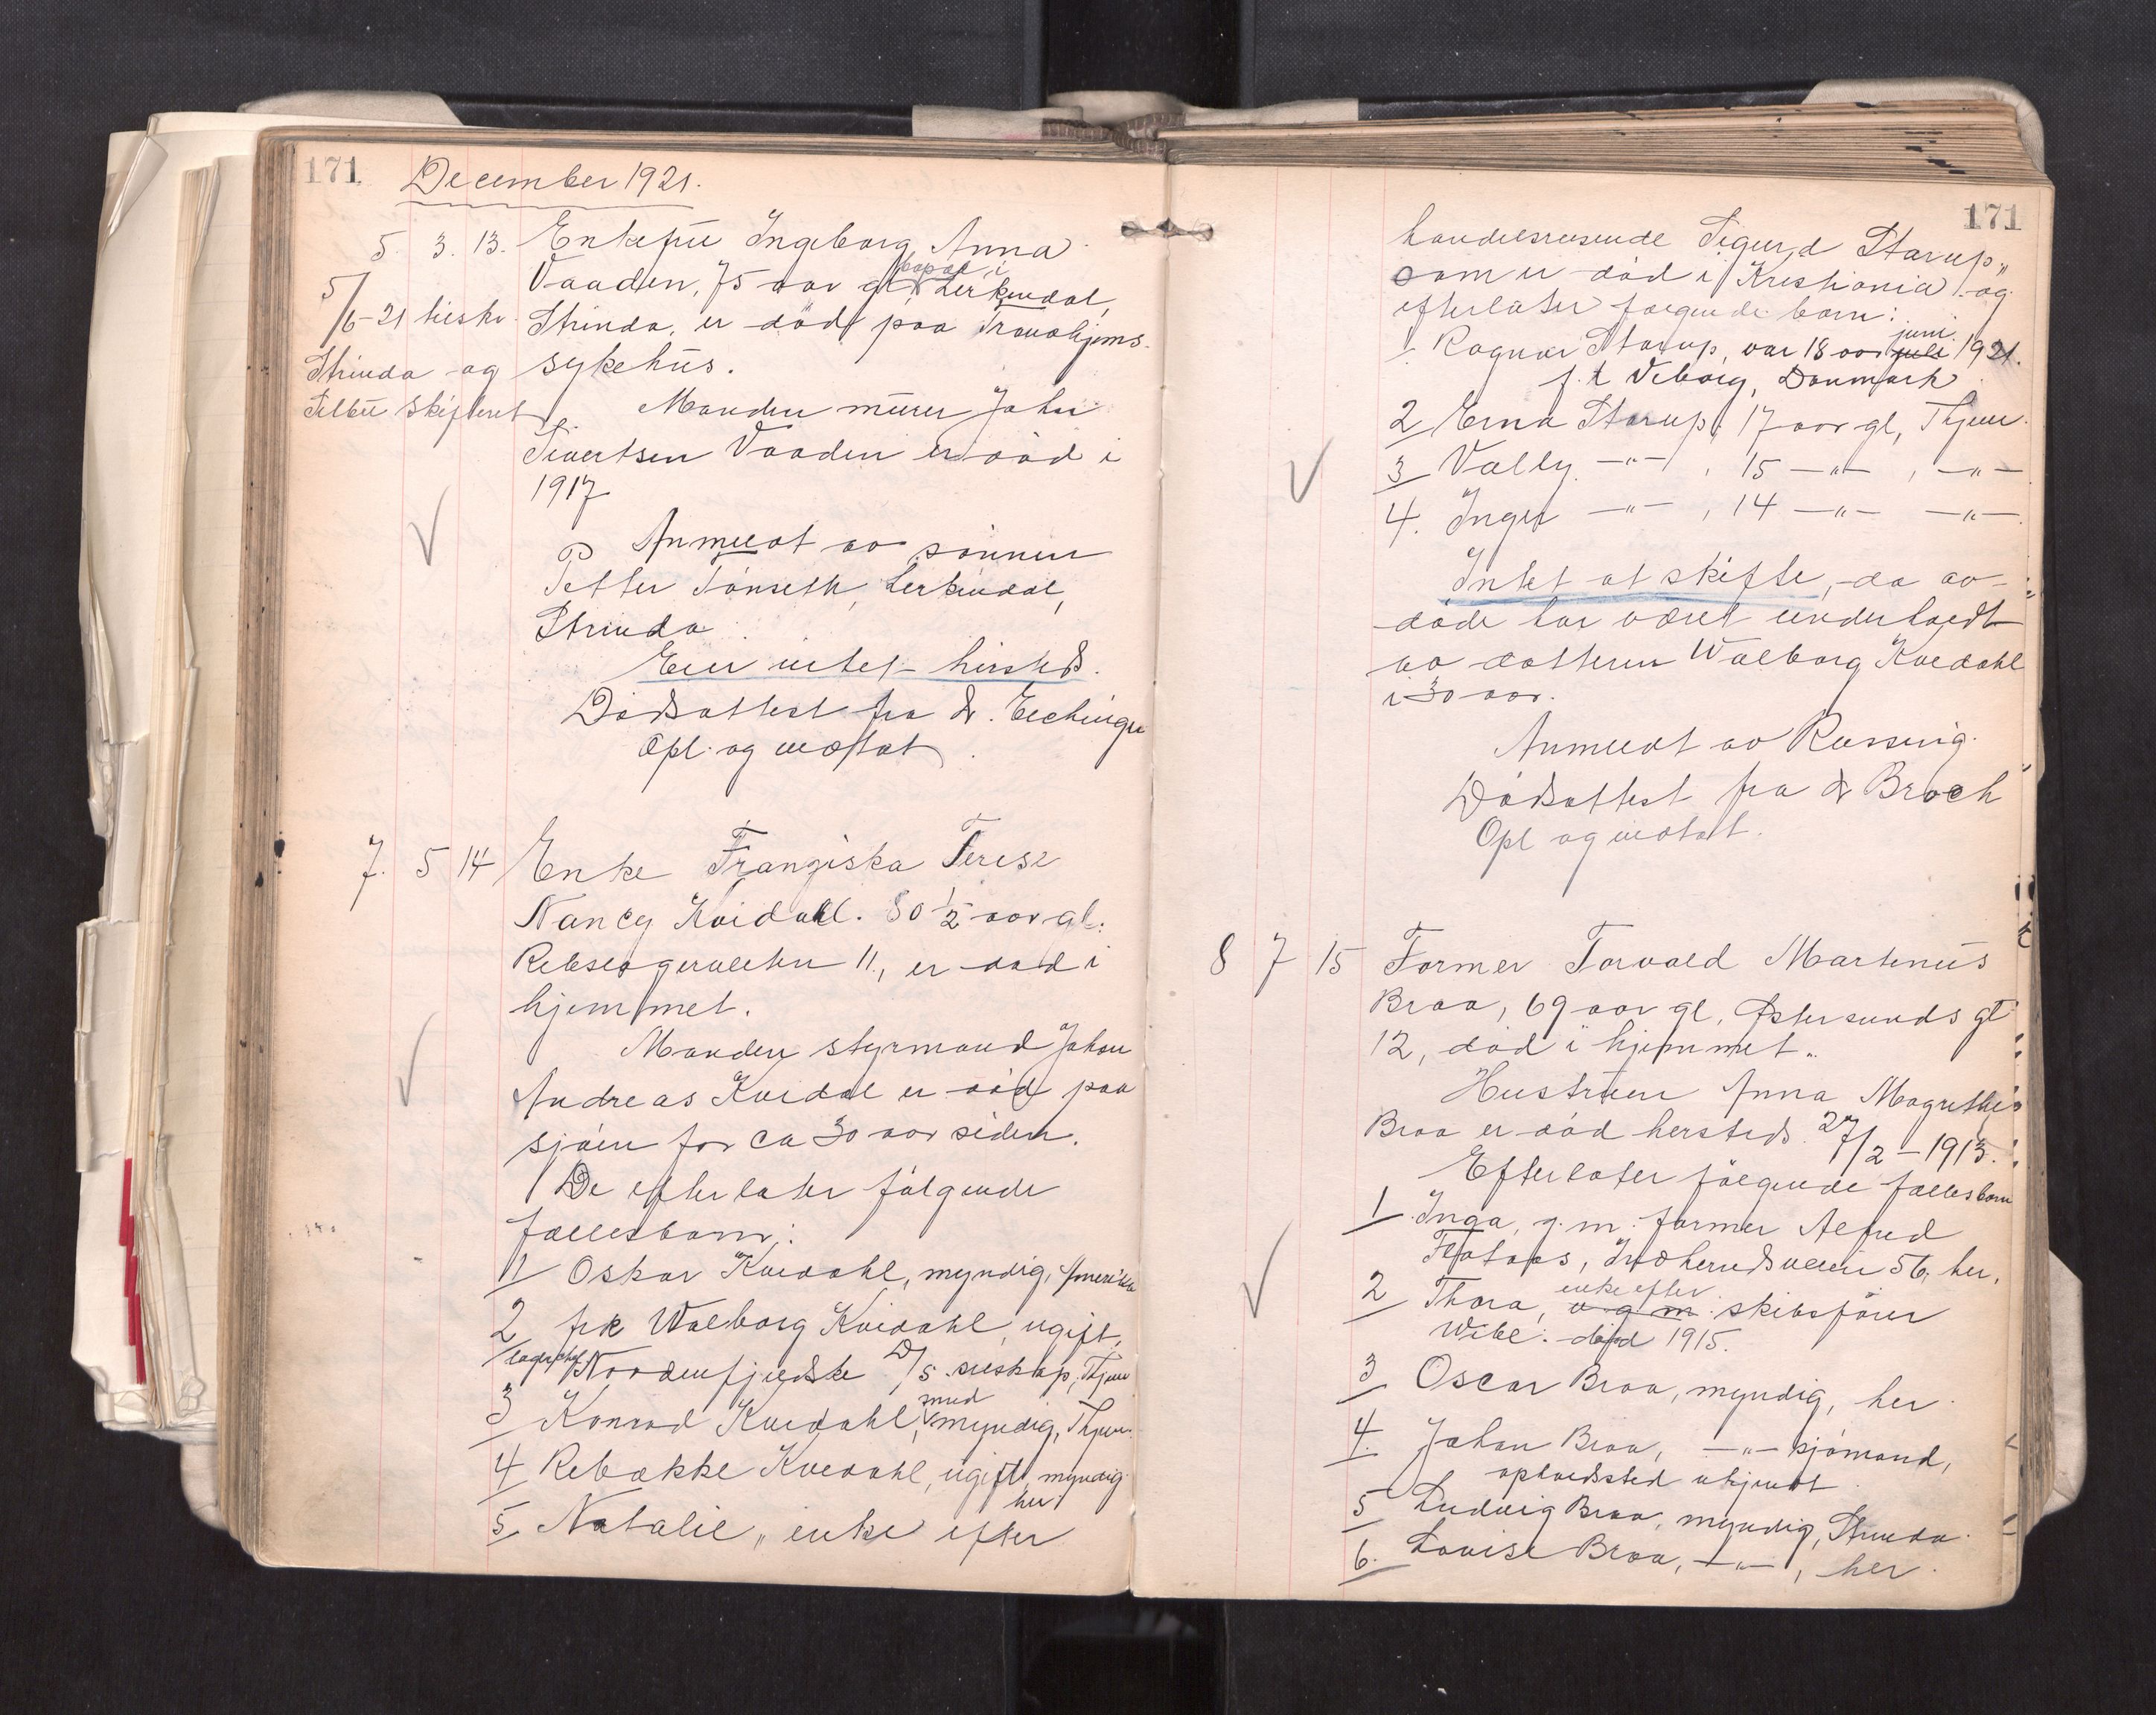 171 December 1921.
5. 3. 13. Enkefru Ingeborg Anna
Vaaden, 75 aar gl, bopæl i Lerkendal,
5/6-21 tilskr. Strinda, er död paa Trondhjems
Strinda og sykehus.
Selbu Skifteret
Manden murer John
Sivertsen Vaaden er död i
1917
Anmeldt av sönnen
Petter Tönseth, Lerkendal,
Strinda.
Eier intet hersteds.
Dödsattest fra dr.
Opl. og vedtat
7. 5 14 Enke Franziska Terese
Nancy Kvidahl. 80 1/2 aar gl.
Rebslagerveiten 11, er död i
hjemmet.
Manden styrmand Johan
Andreas Kvidal er död paa
sjöen for ca 30 aar siden.
De efterlater fölgende
fællesbarn:
1/ Oskar Kvidahl, myndig, Amerika
2 frk Walborg Kvidahl, ugift,
Nordenfjeldske D/S selskap, Thjem
3 Konrad Kvidahl, smed myndig, Thjem.
4 Rebekke Kvidahl, ugift, myndig
her
5 Natalie, enke efter
171
handelsreisende Sigurd Starup,
som er död i Kristiania og
efterlater følgende barn:
1 Ragnar Starup, var 18 aar juli juni 1921.
f. t. Viborg, Danmark
2 Erna Starup, 17 aar gl, Thjem.
3 Vally -"-, 15 -"-, -"-
4. Inger -"-, 14 -"- -"-
Intet at skifte, da av-
döde har været underholdt
av datteren Walborg Kvidahl
i 30 aar.
Anmeldt av
Dödsattest fra dr Broch
Opl og vedtat.
8 7 15 Former Torvald Martinus
Braa, 69 aar gl, Østersunds gt
12, död i hjemmet.
Hustruen Anna Magrethe
Braa er död hersteds 27/2-1913.
Efterlater fölgende fællesbarn
1 Inga, g. m. former Alfred
Flataas, Indherredsveien 56, her.
2 Thora, v. g m. enke efter skibsförer
Wibe. död 1915.
3 Oscar Braa, myndig, her.
4. Johan Braa, -"- sjömand,
opholdssted ukjendt.
5 Ludvig Braa, myndig, Strinda.
6. Lovise Braa, -"-, her.